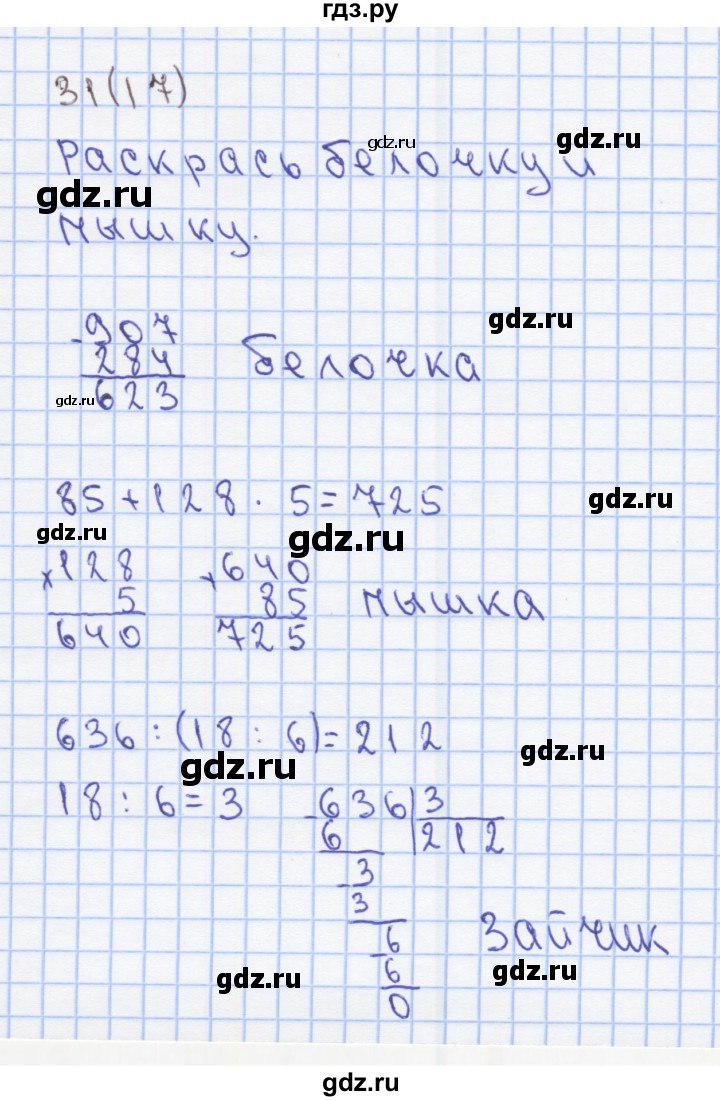 гдз.ру
31(17)
gdz.ru
gdz.ru
Раскрась белочку и
gdz.ru
мышку.
gdz.ru
- 907
284
623
gdz.ru
белочка
85+128·5=725
gdz.ru
gdz.ru
gdz.ru
×128
5
640
+640
85
725
мышка
636:(18:6)=212
gdz.ru
gdz.ru
18:6=3
-636|3
6 212
-3
3
-6
6
0
зайчик
gdz.ru
gdz.ru
gdz.ru